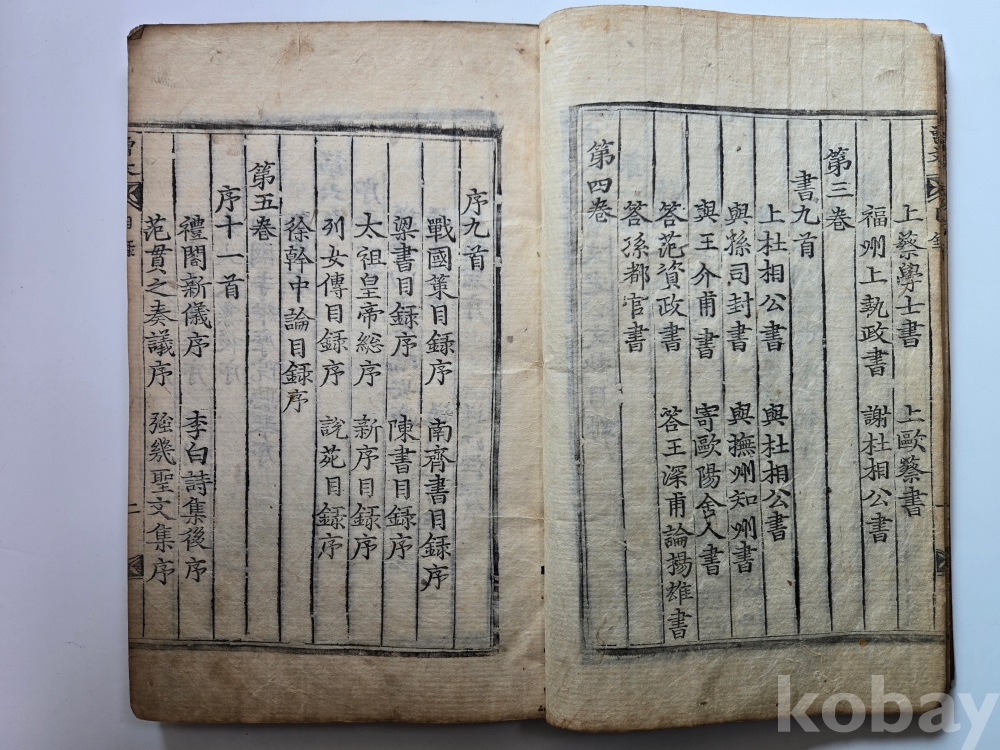 上蔡學士書　上歐蔡書
福州上執政書　謝杜相公書
第三卷
書九首
上杜相公書　與杜相公書
與孫司封書　與撫州知州書
與王介甫書　寄歐陽舍人書
答范資政書　答王深甫論揚雄書
答孫都官書
第四卷
序九首
戰國策目録序　南齊書目録序
梁書目録序　陳書目録序
太祖皇帝総序　新序目録序
列女傳目録序　説苑目録序
徐幹中論目録序
第五卷
序十一首
禮閣新儀序　李白詩集後序
范貫之奏議序　強幾聖文集序
曾文
目録
二
kobay